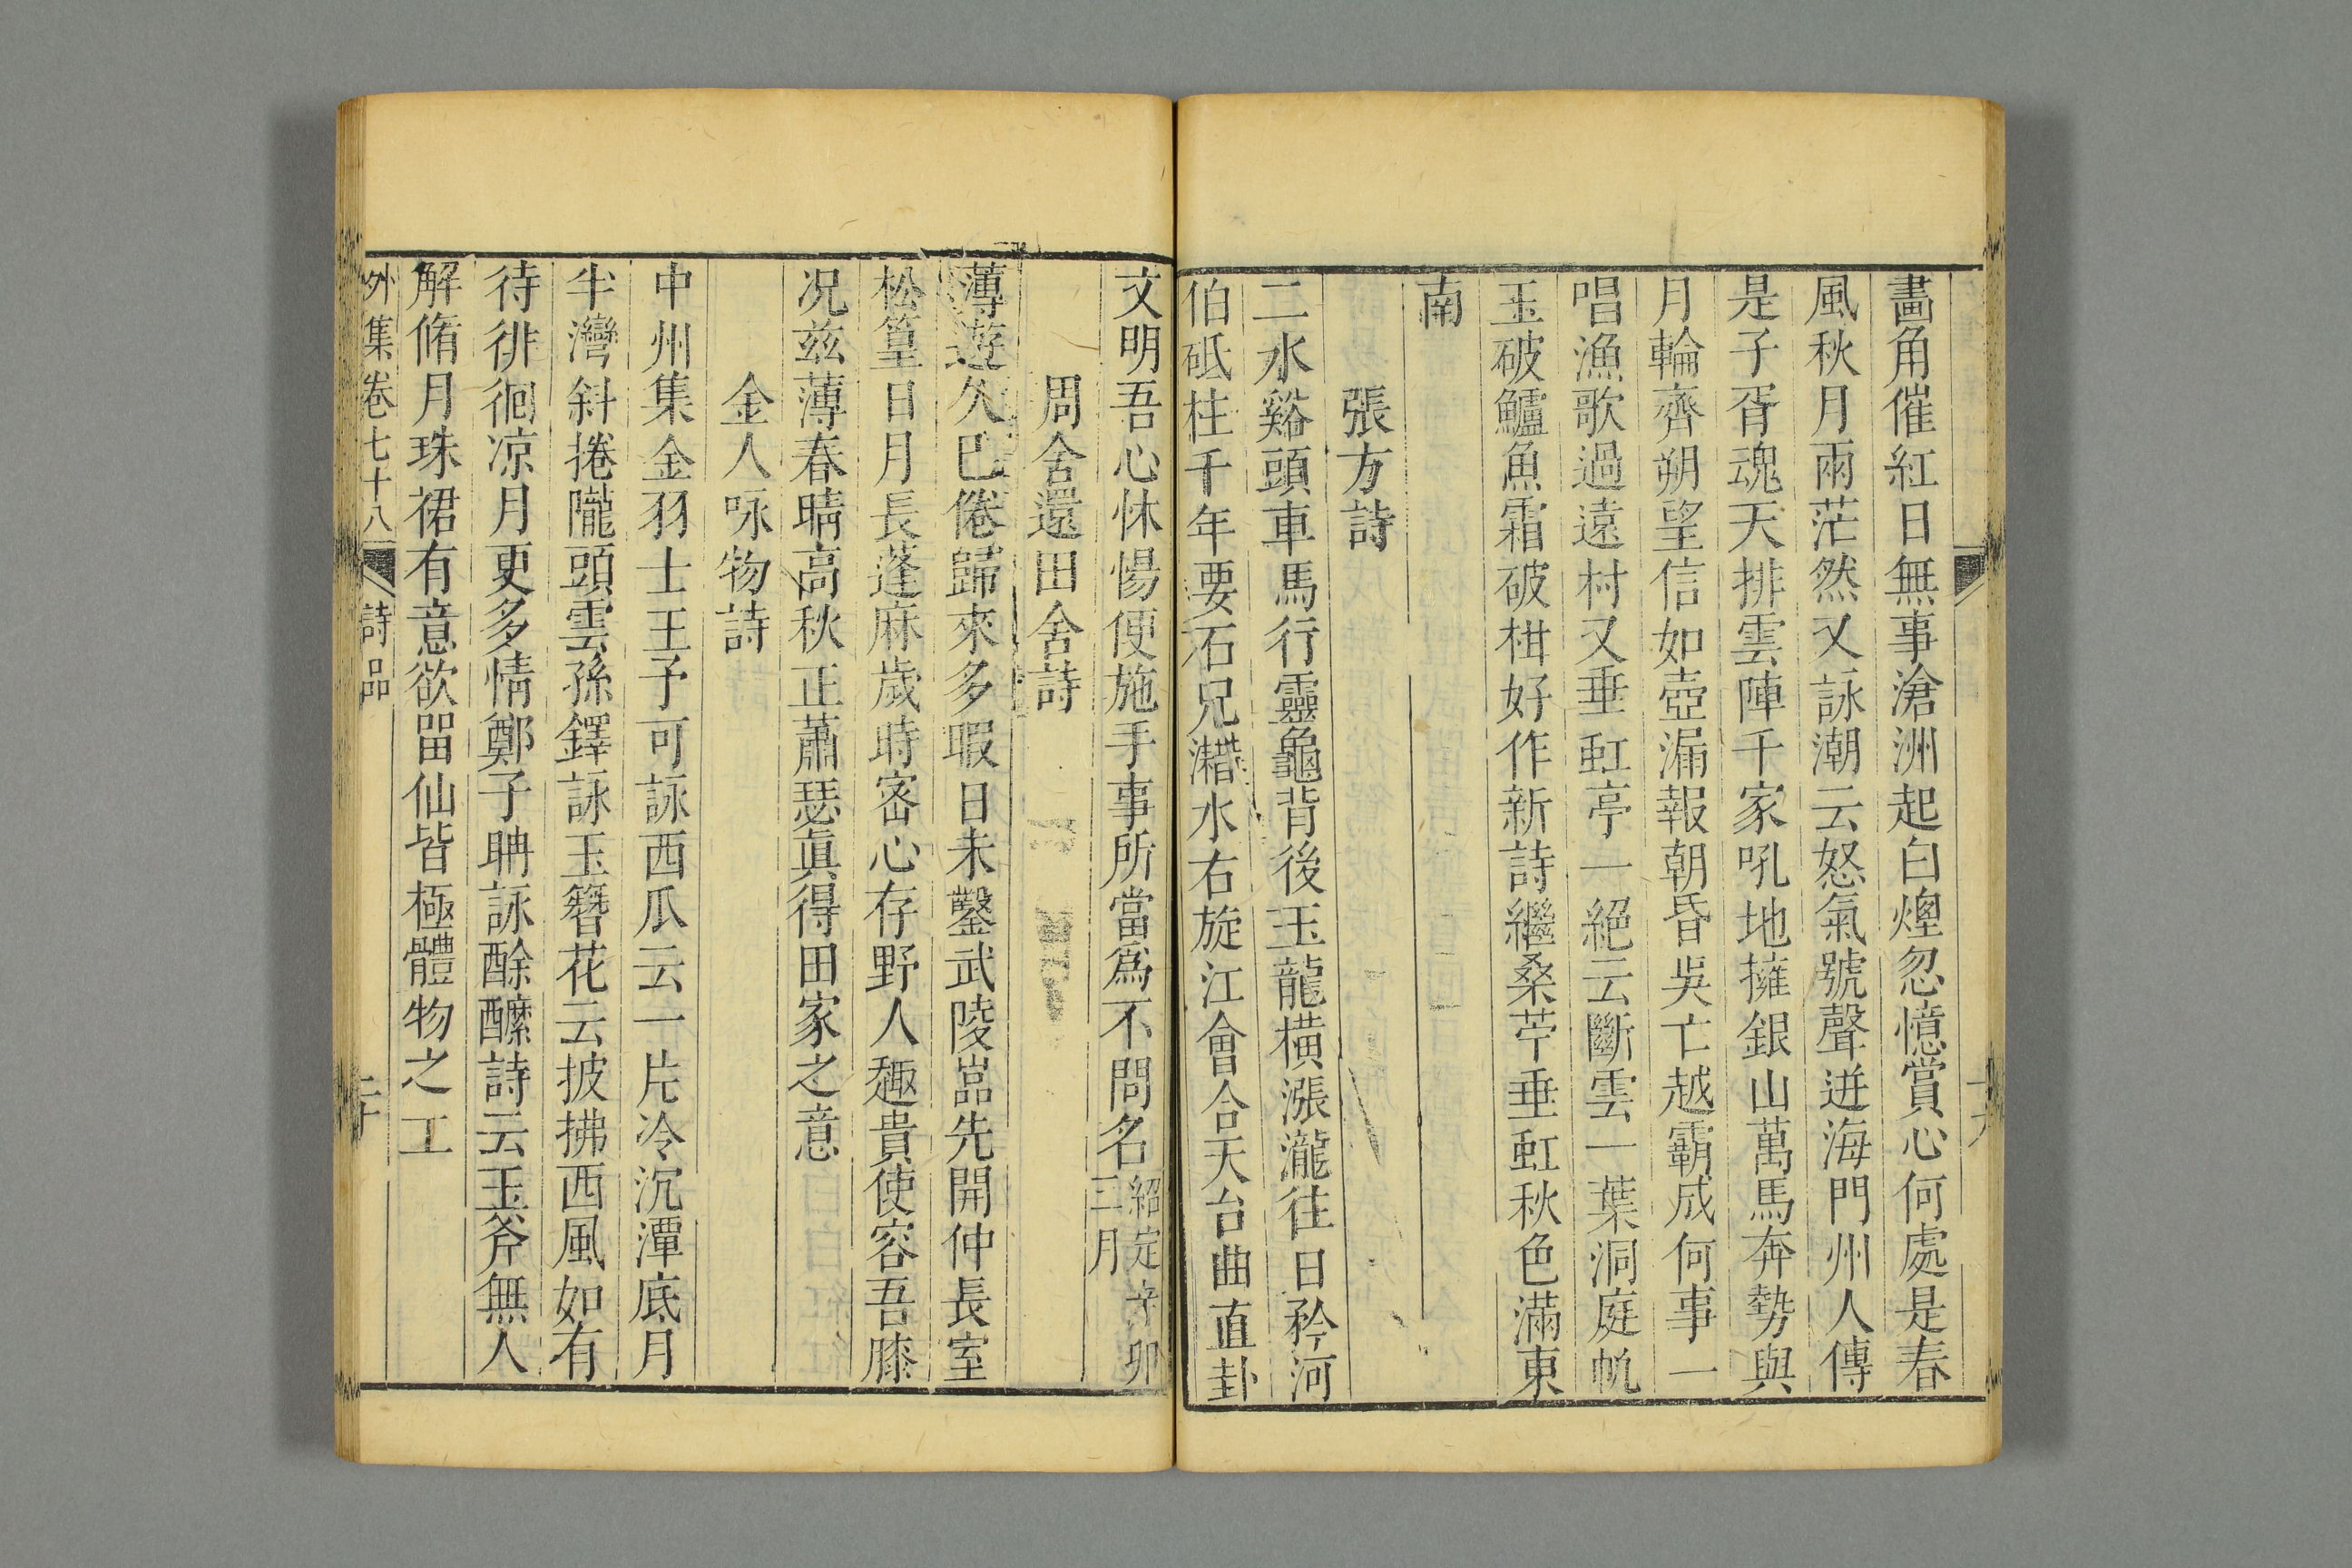 畫角催紅日無事滄洲起白煙忽憶賞心何處是春
風秋月兩茫然又詠潮云怒氣號聲迸海門州人傳
是子胥魂天排雲陣千家吼地擁銀山萬馬奔勢與
月輪齊朔望信如壺漏報朝昏吳亡越霸成何事一
唱漁歌過遠村又垂虹亭一絕云斷雲一葉洞庭帆
玉破鱸魚霜破柑好作新詩繼桑苧垂虹秋色滿東
南
張方詩
二水谿頭車馬行靈龜背後玉龍橫漲瀧往日矜河
伯砥柱千年要石兄灊水右旋江會合天台曲直卦
文明吾心怵惕便施手事所當爲不問名紹定辛卯
三月
周舍還田舍詩
薄遊久已倦歸來多暇日未鑿武陵嵓先開仲長室
松篁日月長蓬麻歲時密心存野人趣貴使容吾膝
况茲薄春晴高秋正蕭瑟眞得田家之意
金人咏物詩
中州集金羽士王予可詠西瓜云一片冷沉潭底月
半灣斜捲隴頭雲孫鐸詠玉簪花云披拂西風如有
待徘徊凉月更多情鄭子聃詠酴醾詩云玉斧無人
解脩月珠裙有意欲留仙皆極體物之工
外集卷七十八 詩品 二十